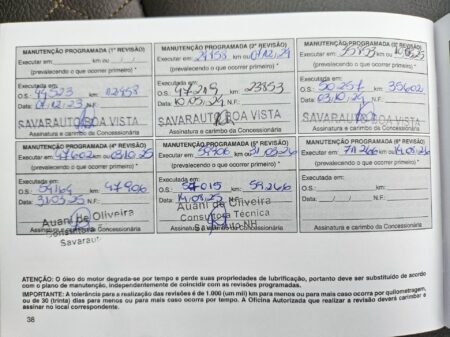 MANUTENÇÃO PROGRAMADA (1ª REVISÃO)
Executar em: km ou / /
(prevalecendo o que ocorrer primeiro) *
O.S.: km:
Data: 01.12.23 N.F.:
SAVARAUTO BOA VISTA
Assinatura e carimbo da Concessionária
MANUTENÇÃO PROGRAMADA (2ª REVISÃO)
Executar em: km ou
(prevalecendo o que ocorrer primeiro) *
O.S.: 47.219 km: 23853
Data: 10.05.24 N.F.:
SAVARAUTO BOA VISTA
Assinatura e carimbo da Concessionária
MANUTENÇÃO PROGRAMADA (3ª REVISÃO)
Executar em: 35853 km ou
(prevalecendo o que ocorrer primeiro) *
O.S.: 50.257 km: 35602
Data: 03.10.24 N.F.:
SAVARAUTO BOA VISTA
Assinatura e carimbo da Concessionária
MANUTENÇÃO PROGRAMADA (4ª REVISÃO)
Executar em: 47602 km ou 03.10.25
(prevalecendo o que ocorrer primeiro) *
O.S.: 54164 km: 47906
Data: 31.03.25 N.F.:
Auani de Oliveira
Savaraut
Assinatura e carimbo da Concessionária
MANUTENÇÃO PROGRAMADA (5ª REVISÃO)
Executar em: 59906 km ou 31.03.26
(prevalecendo o que ocorrer primeiro) *
O.S.: 57015 km: 59.266
Data: 14.08.25 N.F.:
Auani de Oliveira
Consultora Técnica
Savarauto NH
Assinatura e carimbo da Concessionária
MANUTENÇÃO PROGRAMADA (6ª REVISÃO)
Executar em: 71.266 km ou 14.08.26
(prevalecendo o que ocorrer primeiro) *
O.S.: km:
Data: / / N.F.:
Assinatura e carimbo da Concessionária
ATENÇÃO: O óleo do motor degrada-se por tempo e perde suas propriedades de lubrificação, portanto deve ser substituído de acordo
com o plano de manutenção, independentemente de coincidir com as revisões programadas.
IMPORTANTE: A tolerância para a realização das revisões é de 1.000 (um mil) km para menos ou para mais caso ocorra por quilometragem,
ou de 30 (trinta) dias para menos ou para mais caso ocorra por tempo. A Oficina Autorizada que realizar a revisão deverá carimbar e
assinar no local correspondente.
38